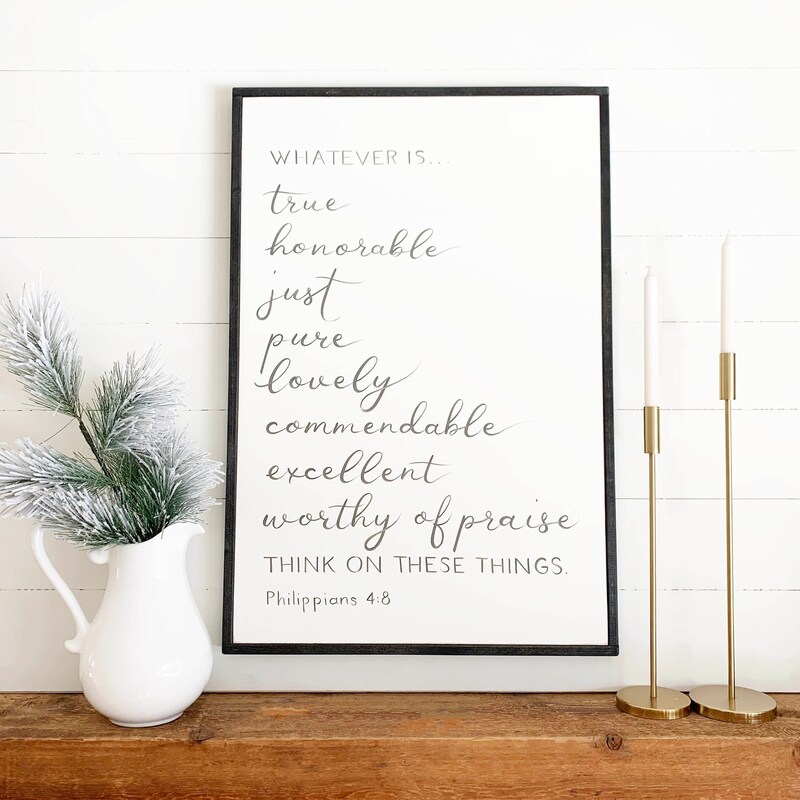 WHATEVER IS...
true
honorable
just
pure
lovely
commendable
excellent
worthy of praise
THINK ON THESE THINGS.
Philippians 4:8